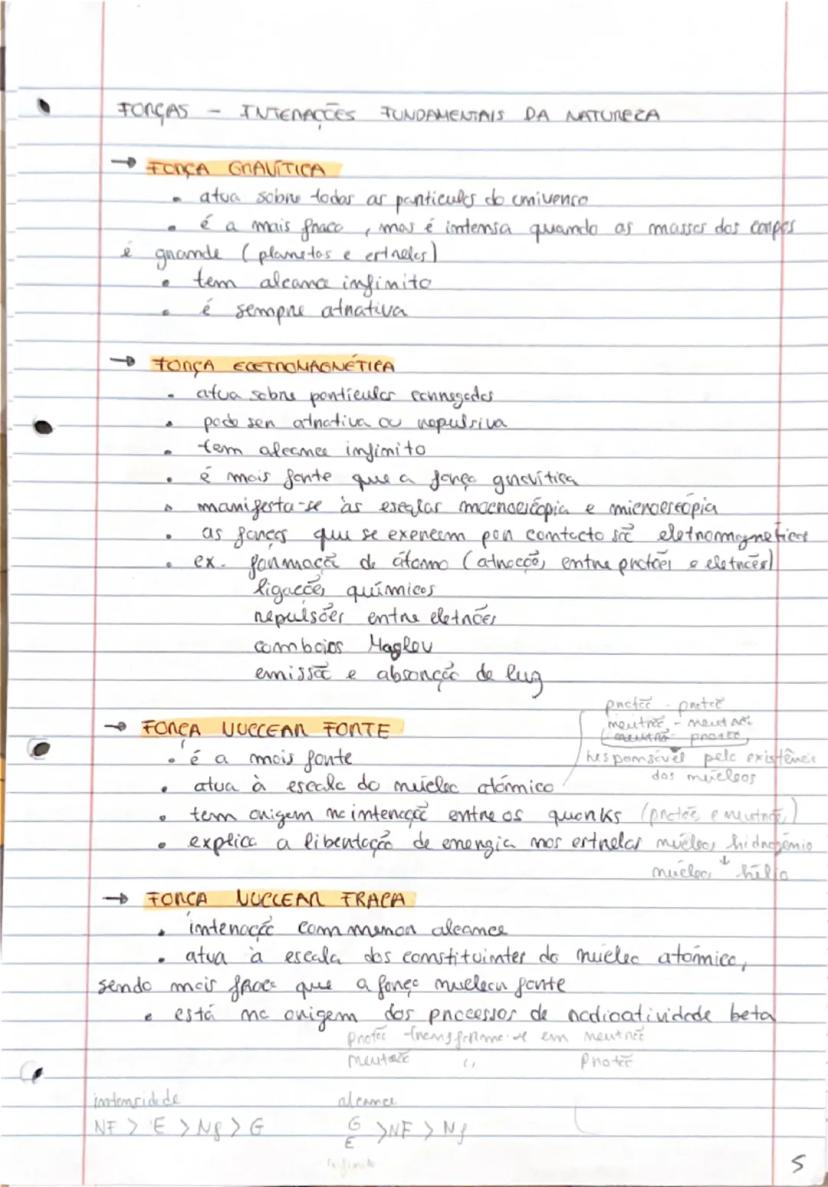 FORÇAS - INTERAÇÕES FUNDAMENTAIS DA NATUREZA
→ FORÇA GRAVÍTICA
• atua sobre todas as partículas do universo
• é a mais fraca, mas é intensa quando as massas dos corpos
é grande (planetas e estrelas)
• tem alcance infinito
• é sempre atrativa
→ FORÇA ELETROMAGNÉTICA
• atua sobre partículas carregadas
• pode ser atrativa ou repulsiva
• tem alcance infinito
• é mais forte que a força gravítica
• manifesta-se às escalas macroscópia e microscópia
• as forças que se exercem por contacto sã eletromagnéticas
• ex. formaçã do átomo (atracção, entre protões e eletrões)
ligações químicas
repulsões entre eletrões
comboios Maglev
emissã e absorção de luz
protão - protão
neutrão - neutrão
neutrão - protão
→ FORÇA NUCLEAR FORTE
• é a mais forte
responsável pela existência
dos núcleos
• atua à escala do núcleo atómico
• tem origem na interação entre os quarks (protão e neutrão)
• explica a libertação de energia nas estrelas núcleos hidrogénio
↓
núcleos hélio
→ FORÇA NUCLEAR FRACA
• interação com menor alcance
• atua à escala dos constituintes do núcleo atómico,
sendo mais fraca que a força nuclear forte
• está na origem dos processos de radioatividade beta
protão transforma-se em neutrão
neutrão " protão
intensidade alcance
NF > E > Nf > G
G
E > NF > Nf
infinito
5